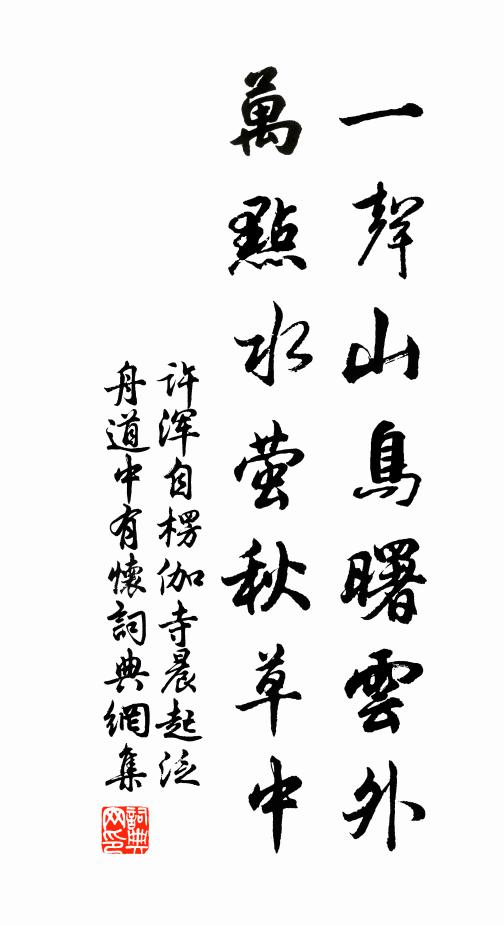 一聲山鳥曙雲外
萬點水萤秋草中
许浑自楞伽寺晨起泛
舟道中有懷詞典網集
詞典网印